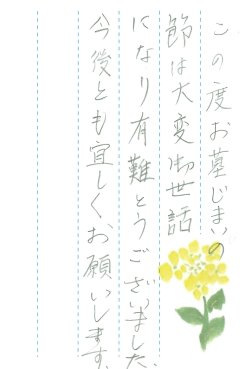 この度お墓じまいの
節は大変御世話
になり有難とうございました、
今後とも宜しくお願いします、